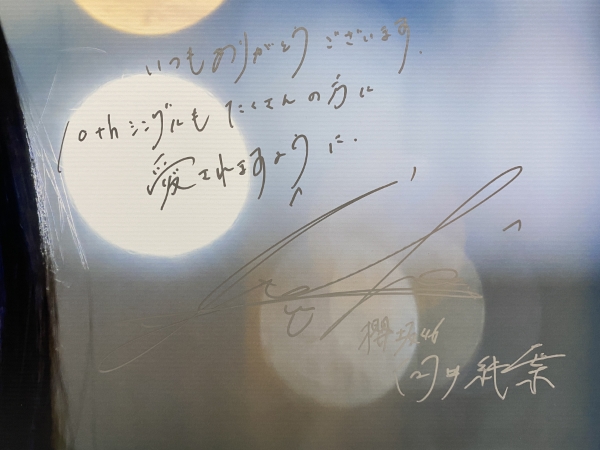 いつもありがとうございます.
10thシングルもたくさんの方に
愛されますように.
櫻坂46
向井純葉